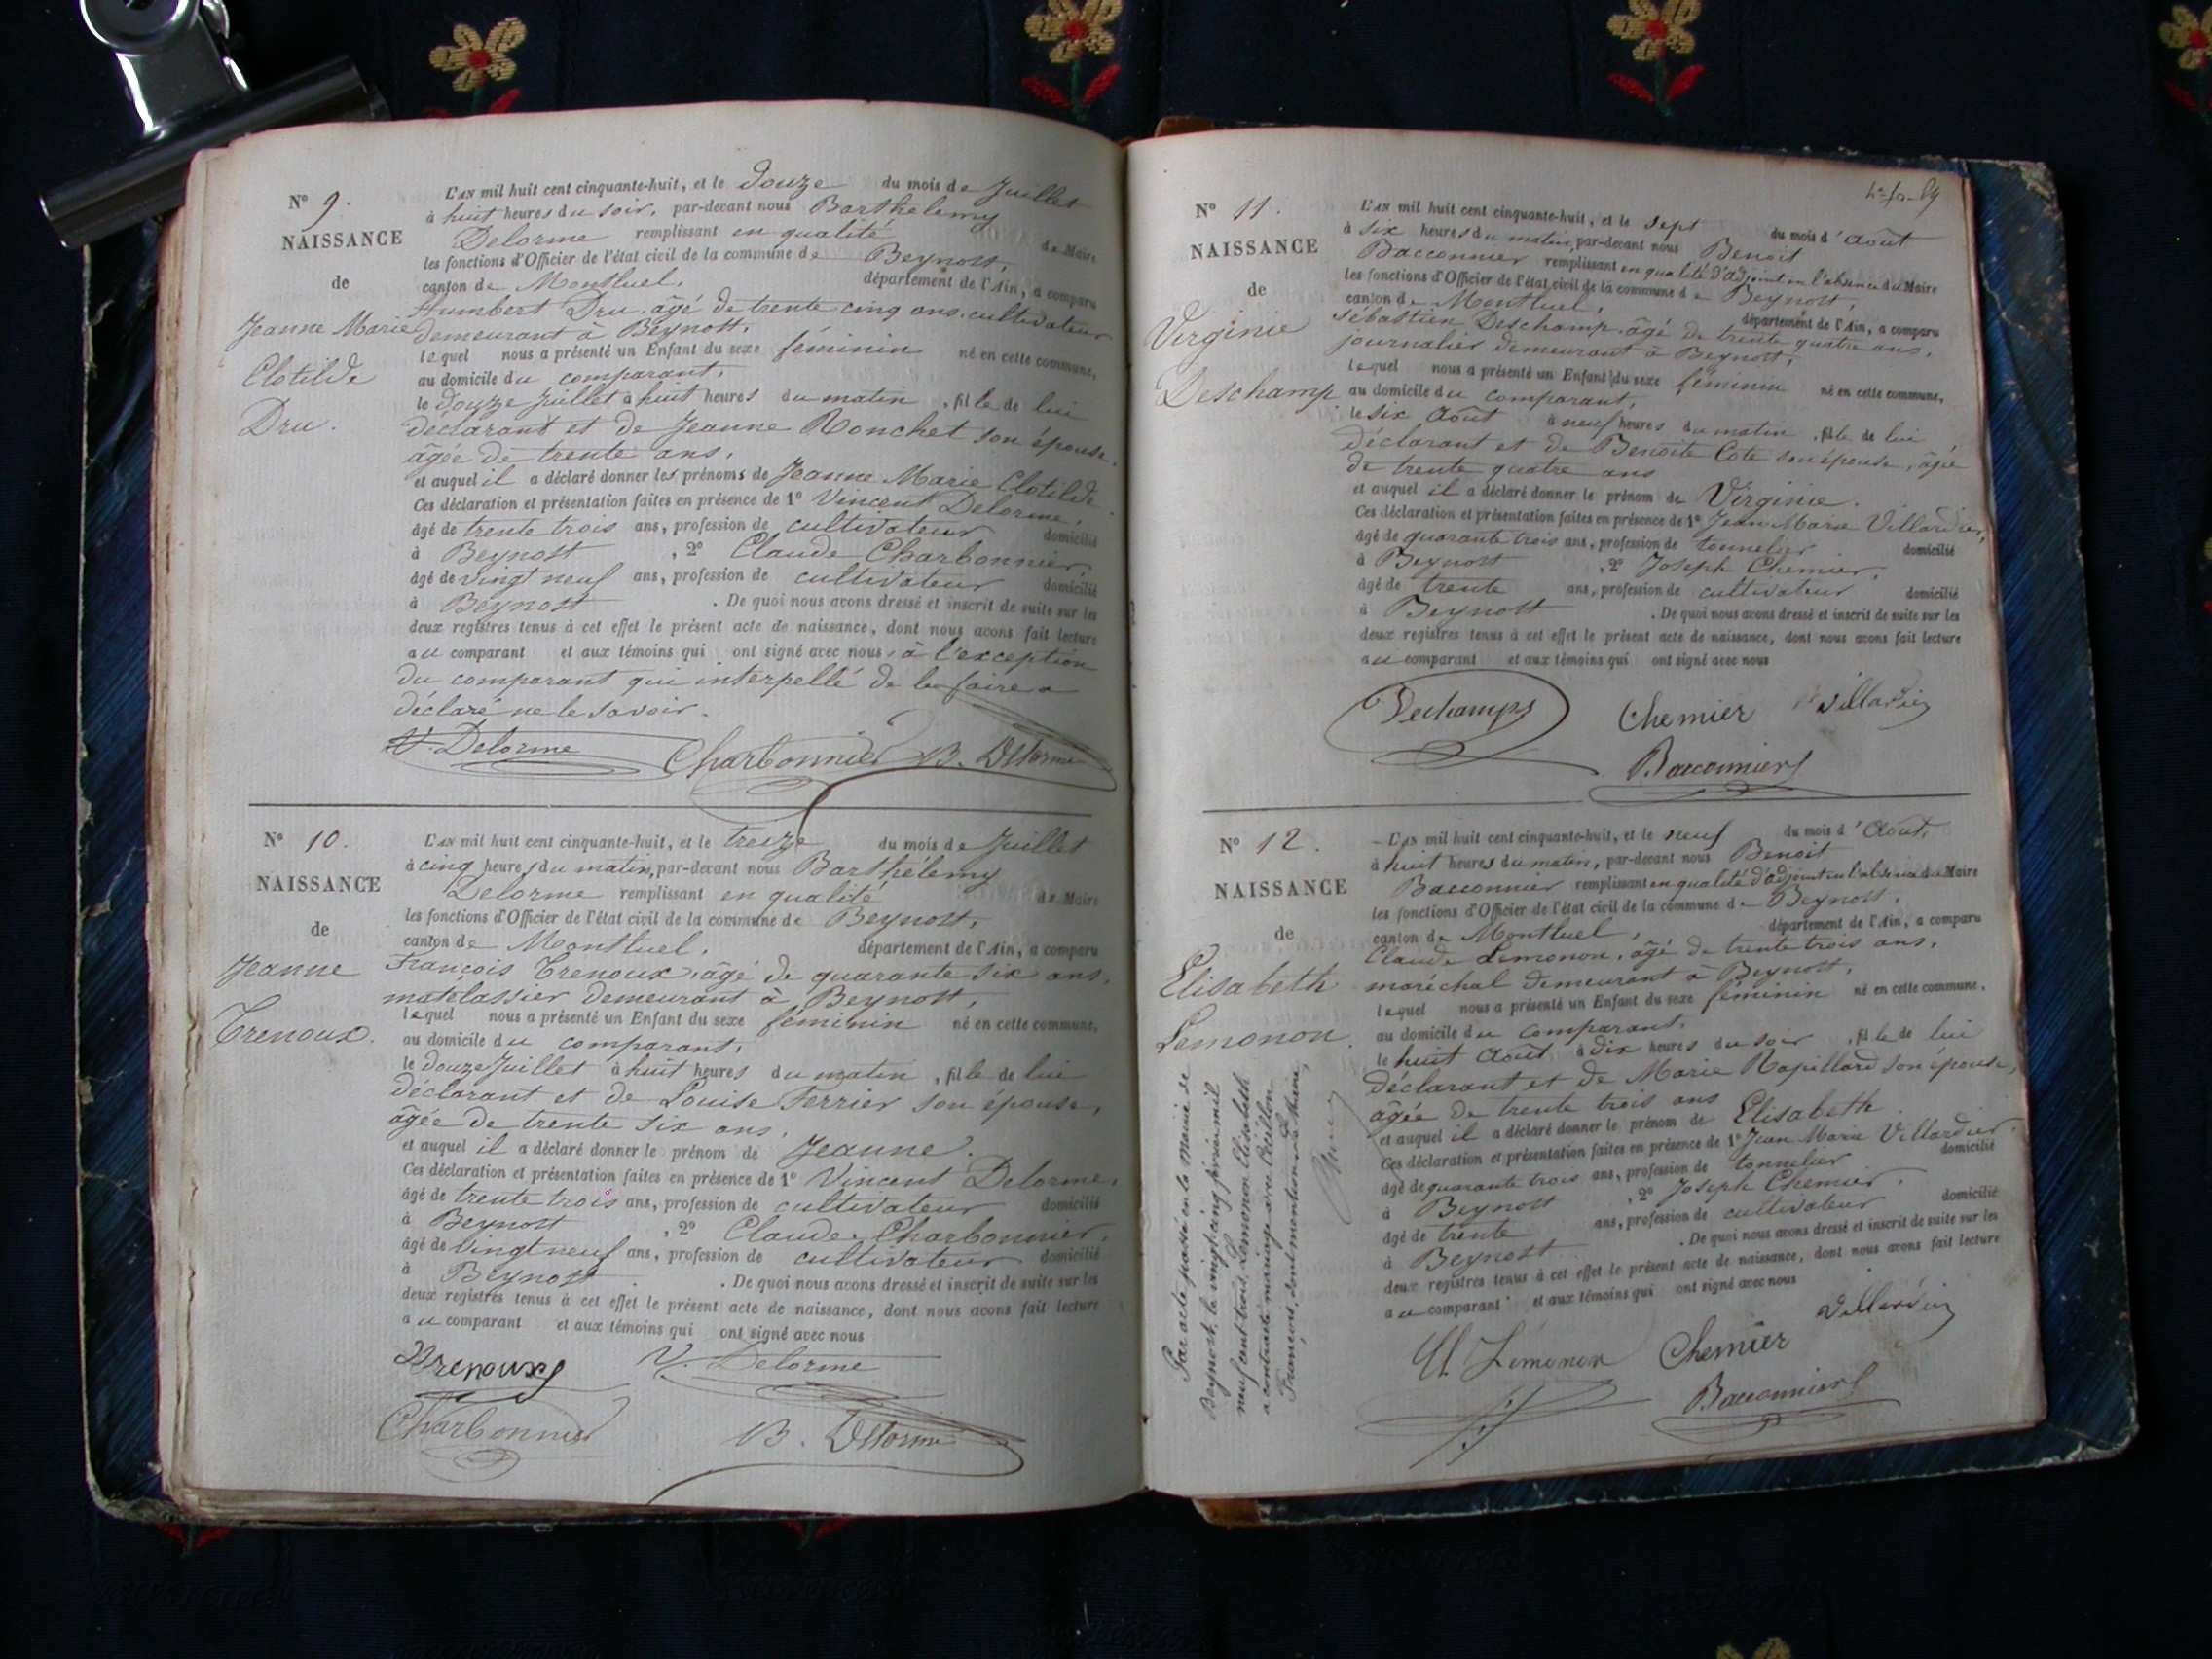 N° 9.
NAISSANCE
de
Jeanne Marie
Clotilde
Dru.
L'AN mil huit cent cinquante-huit, et le douze du mois de Juillet
à huit heures du soir, par-devant nous Barthélemy
Delorme remplissant en qualité de Maire
les fonctions d'Officier de l'état civil de la commune de Beynost,
canton de Montluel, département de l'Ain, a comparu
Humbert Dru, âgé de trente cinq ans, cultivateur
demeurant à Beynost,
lequel nous a présenté un Enfant du sexe féminin né en cette commune,
au domicile du comparant,
le douze Juillet à huit heures du matin, fille de lui
déclarant et de Jeanne Ronchet son épouse,
âgée de trente ans,
et auquel il a déclaré donner les prénoms de Jeanne Marie Clotilde.
Ces déclaration et présentation faites en présence de 1° Vincent Delorme,
âgé de trente trois ans, profession de cultivateur domicilié
à Beynost, 2° Claude Charbonnier,
âgé de vingt neuf ans, profession de cultivateur domicilié
à Beynost. De quoi nous avons dressé et inscrit de suite sur les
deux registres tenus à cet effet le présent acte de naissance, dont nous avons fait lecture
au comparant et aux témoins qui ont signé avec nous, à l'exception
du comparant qui interpellé de le faire a
déclaré ne le savoir.
V. Delorme Charbonnier B. Delorme
N° 10.
NAISSANCE
de
Jeanne
Trenoux.
L'AN mil huit cent cinquante-huit, et le treize du mois de Juillet
à cinq heures du matin, par-devant nous Barthélemy
Delorme remplissant en qualité de Maire
les fonctions d'Officier de l'état civil de la commune de Beynost,
canton de Montluel, département de l'Ain, a comparu
François Trenoux, âgé de quarante six ans,
matelassier demeurant à Beynost,
lequel nous a présenté un Enfant du sexe féminin né en cette commune,
au domicile du comparant,
le douze Juillet à huit heures du matin, fille de lui
déclarant et de Louise Ferrier son épouse,
âgée de trente six ans,
et auquel il a déclaré donner le prénom de Jeanne.
Ces déclaration et présentation faites en présence de 1° Vincent Delorme,
âgé de trente trois ans, profession de cultivateur domicilié
à Beynost, 2° Claude Charbonnier,
âgé de vingt neuf ans, profession de cultivateur domicilié
à Beynost. De quoi nous avons dressé et inscrit de suite sur les
deux registres tenus à cet effet le présent acte de naissance, dont nous avons fait lecture
au comparant et aux témoins qui ont signé avec nous
Trenoux V. Delorme
Charbonnier B. Delorme
N° 11
NAISSANCE
de
Virginie
Deschamp
L'AN mil huit cent cinquante-huit, et le sept du mois d'Août
à six heures du matin, par-devant nous Benoit
Bacconnier remplissant en qualité d'adjoint en l'absence du Maire
les fonctions d'Officier de l'état civil de la commune de Beynost,
canton de Montluel, département de l'Ain, a comparu
Sébastien Deschamp, âgé de trente quatre ans,
journalier demeurant à Beynost,
lequel nous a présenté un Enfant du sexe féminin né en cette commune,
au domicile du comparant,
le six Août à neuf heures du matin, fille de lui
déclarant et de Benoite Cote son épouse, âgée
de trente quatre ans
et auquel il a déclaré donner le prénom de Virginie.
Ces déclaration et présentation faites en présence de 1° Jean Marie Villardier,
âgé de quarante trois ans, profession de tonnelier domicilié
à Beynost, 2° Joseph Chemier,
âgé de trente ans, profession de cultivateur domicilié
à Beynost. De quoi nous avons dressé et inscrit de suite sur les
deux registres tenus à cet effet le présent acte de naissance, dont nous avons fait lecture
au comparant et aux témoins qui ont signé avec nous
Dechamps Chemier Villardier
Bacconnier
N° 12.
NAISSANCE
de
Elisabeth
Lemonon.
L'AN mil huit cent cinquante-huit, et le neuf du mois d'Août,
à huit heures du matin, par-devant nous Benoit
Bacconnier remplissant en qualité d'adjoint en l'absence du Maire
les fonctions d'Officier de l'état civil de la commune de Beynost,
canton de Montluel, département de l'Ain, a comparu
Claude Lemonon, âgé de trente trois ans,
maréchal demeurant à Beynost,
lequel nous a présenté un Enfant du sexe féminin né en cette commune,
au domicile du comparant,
le huit Août à dix heures du soir, fille de lui
déclarant et de Marie Rapillard son épouse,
âgée de trente trois ans
et auquel il a déclaré donner le prénom de Elisabeth
Ces déclaration et présentation faites en présence de 1° Jean Marie Villardier
âgé de quarante trois ans, profession de tonnelier domicilié
à Beynost, 2° Joseph Chemier,
âgé de trente ans, profession de cultivateur domicilié
à Beynost. De quoi nous avons dressé et inscrit de suite sur les
deux registres tenus à cet effet le présent acte de naissance, dont nous avons fait lecture
au comparant et aux témoins qui ont signé avec nous
Cl. Lemonon Chemier Villardier
Bacconnier
Par acte passé en la mairie de
Beynost, le vingt cinq février mil
neuf cent trois, Lemonon Elisabeth
a contracté mariage avec
François, dont mention. Le Maire,